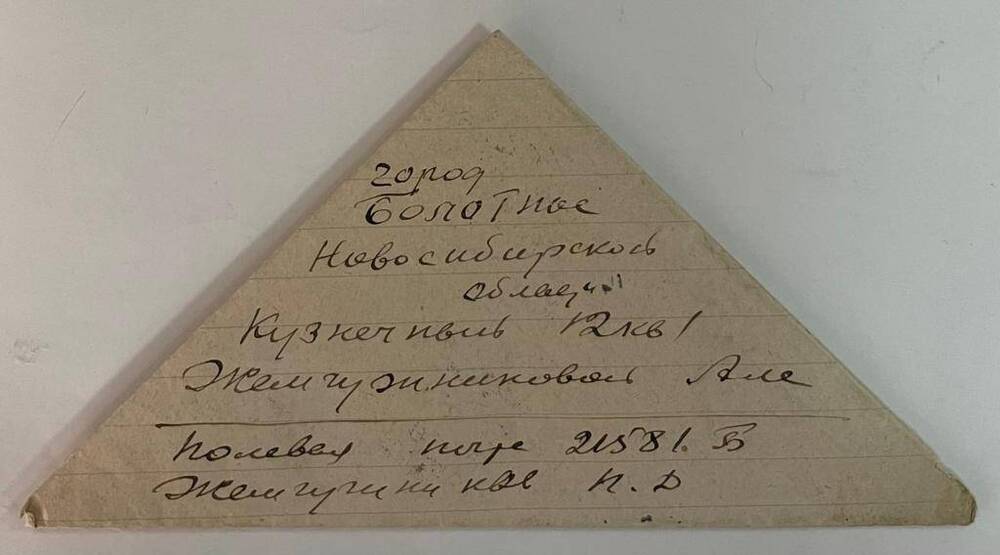 город
Болотное
Новосибирской
области
Кузнечный 12 кв 1
Жемчужниковой Але
Полевая почта 21581. Б
Жемчужников П. Д